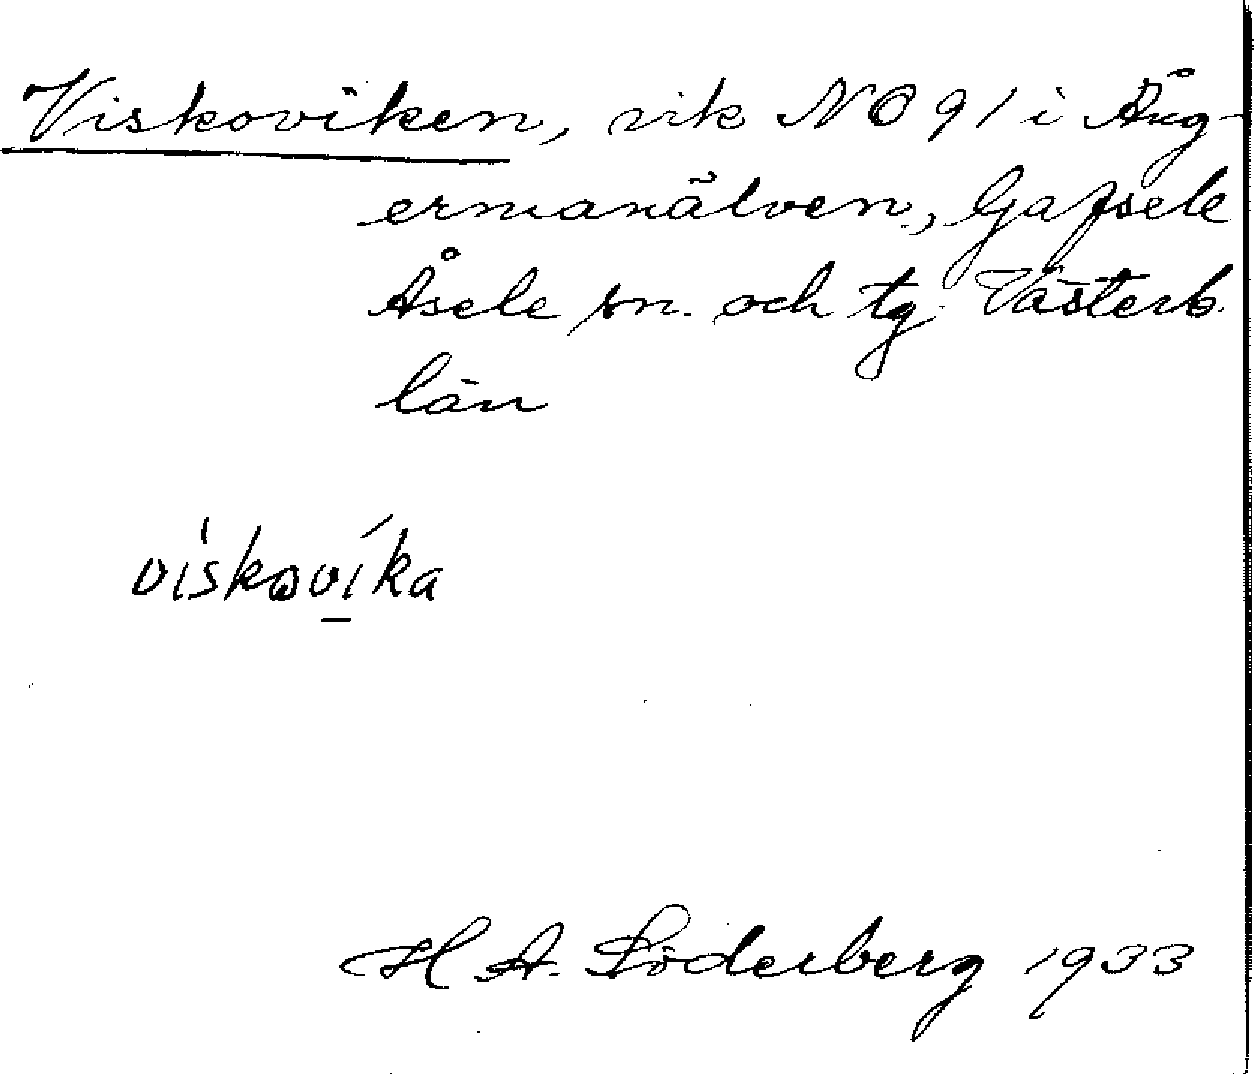 Viskoviken, vik NO 91 i Ång-
ermanälven, Gafsele
Åsele sn. och tg. Västerb.
län
viskovika
H A. Söderberg 1933